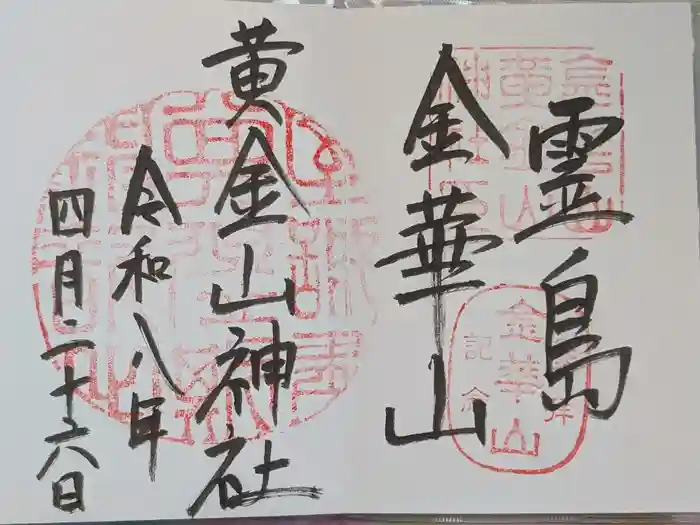 霊島
金華山
黄金山神社
令和八年
四月二十六日
金華山
記念